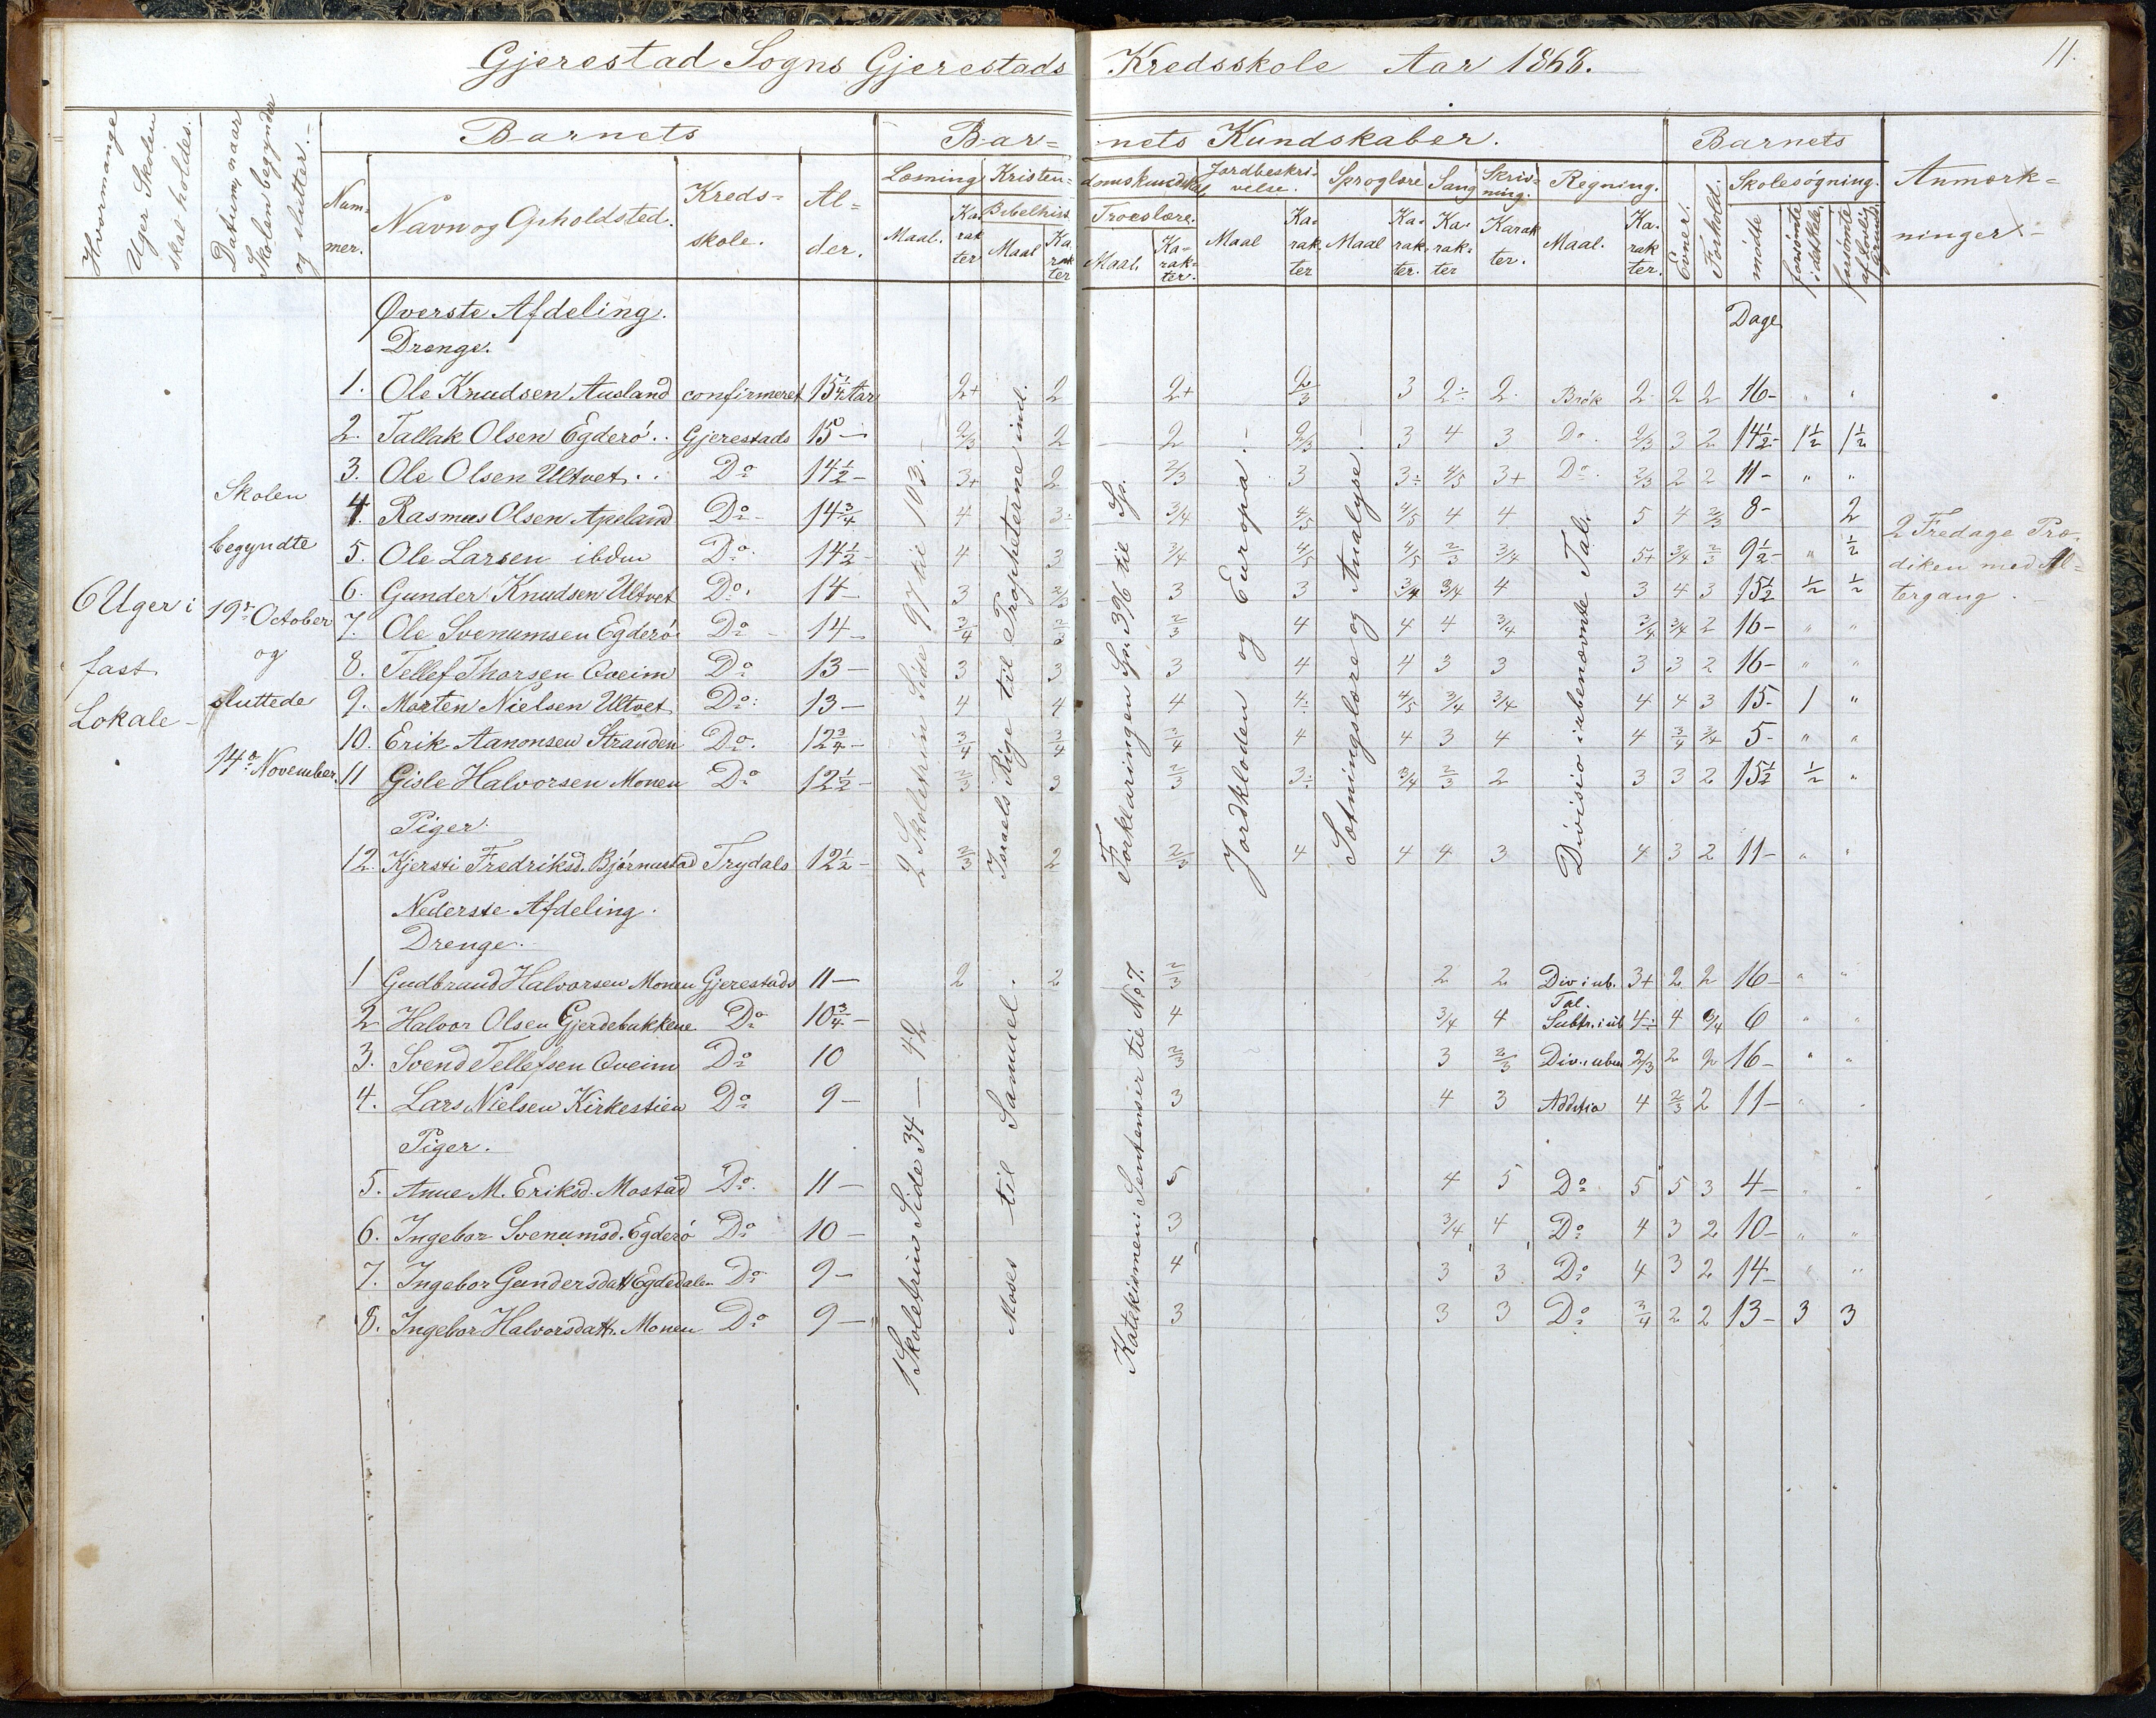 Gjerestad Sogns Gjerestads Kredsskole Aar 1868. 11.
Hvormange Uger Skolen skal holdes.
Datum, naar Skolen begynder og slutter.
Barnets
Bar= nets Kundskaber.
Barnets
Anmærk= ninger
Num= mer.
Navn og Opholdsted.
Kreds= skole.
Al= der.
Læsning
Kristen= domskundskab
Jordbeskri= velse.
Sproglære
Sang
Skriv= ning.
Regning.
Evner.
Forhold.
Skolesøgning.
Maal. Ka rak ter
Bibelhist. Maal Ka rak ter
Troeslære. Maal. Ka= rak= ter.
Maal Ka= rak ter
Maal Ka= rak= ter.
Ka= rak= ter
Karak ter.
Maal. Ka= rak ter.
mødte
forsømte i det hele
forsømte af lovlig Grund
Øverste Afdeling. Dage
Drenge.
1. Ole Knudsen Ausland confirmeret 15 1/4 Aar 2+ 2 2+ 2/3 3 2÷ 2 Brök 2 2 2 16- " "
2. Tallak Olsen Egderö.. Gjerestads 15 — 2/3 2 2 2/3 3 4 3 Do. 2/3 3 2 14 1/2- 1 1/2 1 1/2
3. Ole Olsen Ultvet.. Do 14 1/2 - 3+ 2 2/3 3 3÷ 4/5 3+ Do. 2/3 2 2 11- " "
4. Rasmus Olsen Apeland Do - 14 3/4 4 3÷ 3/4 4/5 4/5 4 4 5 4 2/3 8- 2
5. Ole Larsen ibdm Do. 14 1/2 - 4 3 3/4 4/5 4/5 2/3 3/4 5+ 3/4 2/3 9 1/2- " 1/2
6. Gunder Knudsen Ultvet Do. 14 - 3 2/3 3 3 3/4 3/4 4 3 4 3 15 1/2 1/2 1/2
7. Ole Svenumsen Egderö Do - 14 - 3/4 2/3 2/3 4 4 4 3/4 3/4 3/4 2 16- " "
8. Tellef Thorsen Qveim Do 13 - 3 3 3 4 4 3 3 3 3 2 16- " "
9. Morten Nielsen Ultvet Do: 13 - 4 4 4 4÷ 4/5 3/4 3/4 4 4 3 15- 1 "
10. Erik Aanonsen Stranden Do. 12 3/4 - 3/4 3/4 3/4 4 4 3 4 4 3/4 3/4 5- " "
11 Gisle Halvorsen Monen Do 12 1/2 - 2/3 3 2/3 3÷ 3/4 2/3 2 3 3 2 15 1/2 1/2 "
Piger.
12. Kjersti Fredriksd. Bjørnustad Trydals 12 1/2 - 2/3 2 2/3 4 4 4 3 4 3 2 11- " "
Nederste Afdeling.
Drenge.
1 Gudbrand Halvorsen Monen Gjerestads 11 — 2 2 2/3 2 2 Div i ub. Tal. 3+ 2 2 16- " "
2 Halvor Olsen Gjerdebakkene. Do 10 3/4 - 4 3/4 4 Subtr. i ub 4÷ 4 3/4 6 " "
3. Svend Tellefsen Qveim Do 10 2/3 3 2/3 Div. i uben 2/3 2 2 16- " "
4. Lars Nielsen Kirkestien Do 9 - 3 4 3 Additio 4 2/3 2 11- "
Piger.
5. Anne M. Eriksd. Mostad Do. 11 - 5 4 5 Do 5 5 3 4- " "
6. Ingebor Svenumsd. Egderö Do 10 - 3 3/4 4 Do 4 3 2 10- " "
7. Ingebor Gundersdatt Egdedalen Do 9 - 4 3 3 Do 4 3 2 14- " "
8. Ingebor Halvorsdatt. Monen Do 9 - 3 3 3 Do 3/4 2 2 13- 3 3
6 Uger i
fast
Lokale -
Skolen
begyndte
19de October
og
sluttede
14de November.
2 Skoletrin Side 97 til 103.
Israels Rige til Propheterne ind.
Forklaringen Sp. 396 til Sp.
Jordkloden og Europa.
Sætningslære og Analyse
Divisio i ubenævnte Tal.
1 Skoletrin Side 34 — 42
Moses til Samuel.
Katekismen i Sentenser til No 7.
2 Fredage Præ=
diken med Al=
tergang.